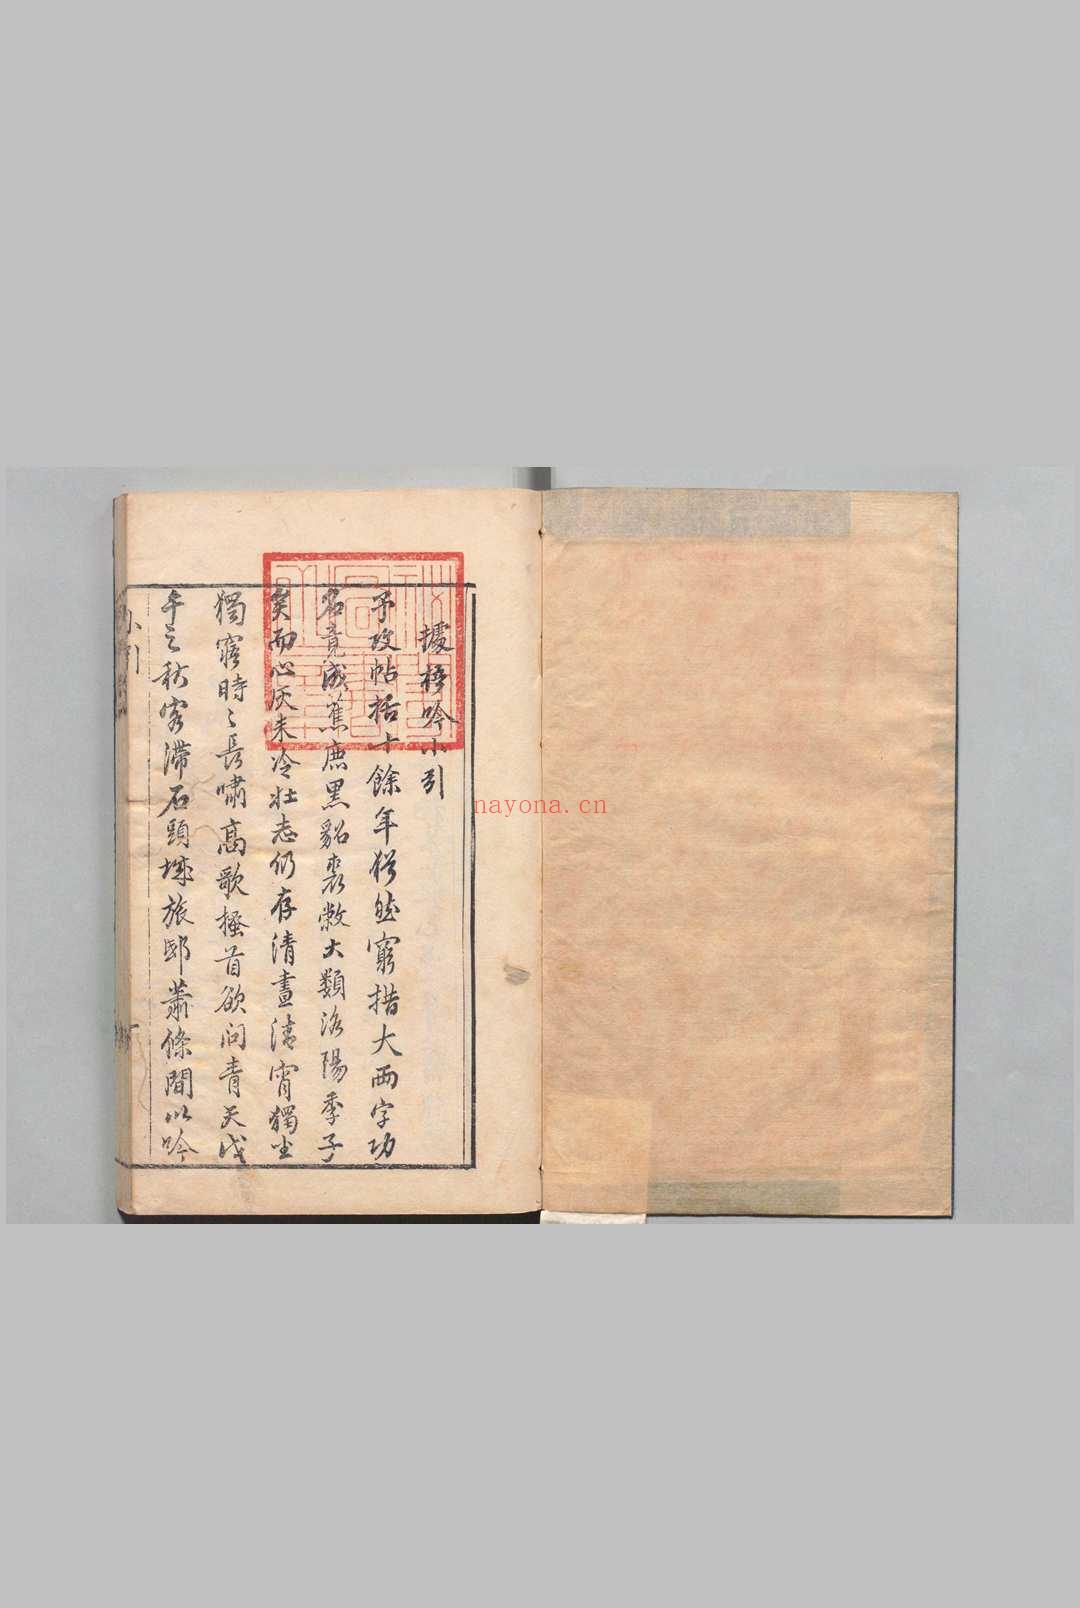 據梧吟小引
予攻帖括十餘年猶然窮措大兩字功
名竟成蕉鹿黑貂裘敝大類洛陽季子
矣而心灰未冷壯志仍存清晝清宵獨坐
獨寤時〻長嘯高歌搔首欲问青天戊
午之秋客滞石頭城旅邸蕭條間以吟
小引
nayona.cn